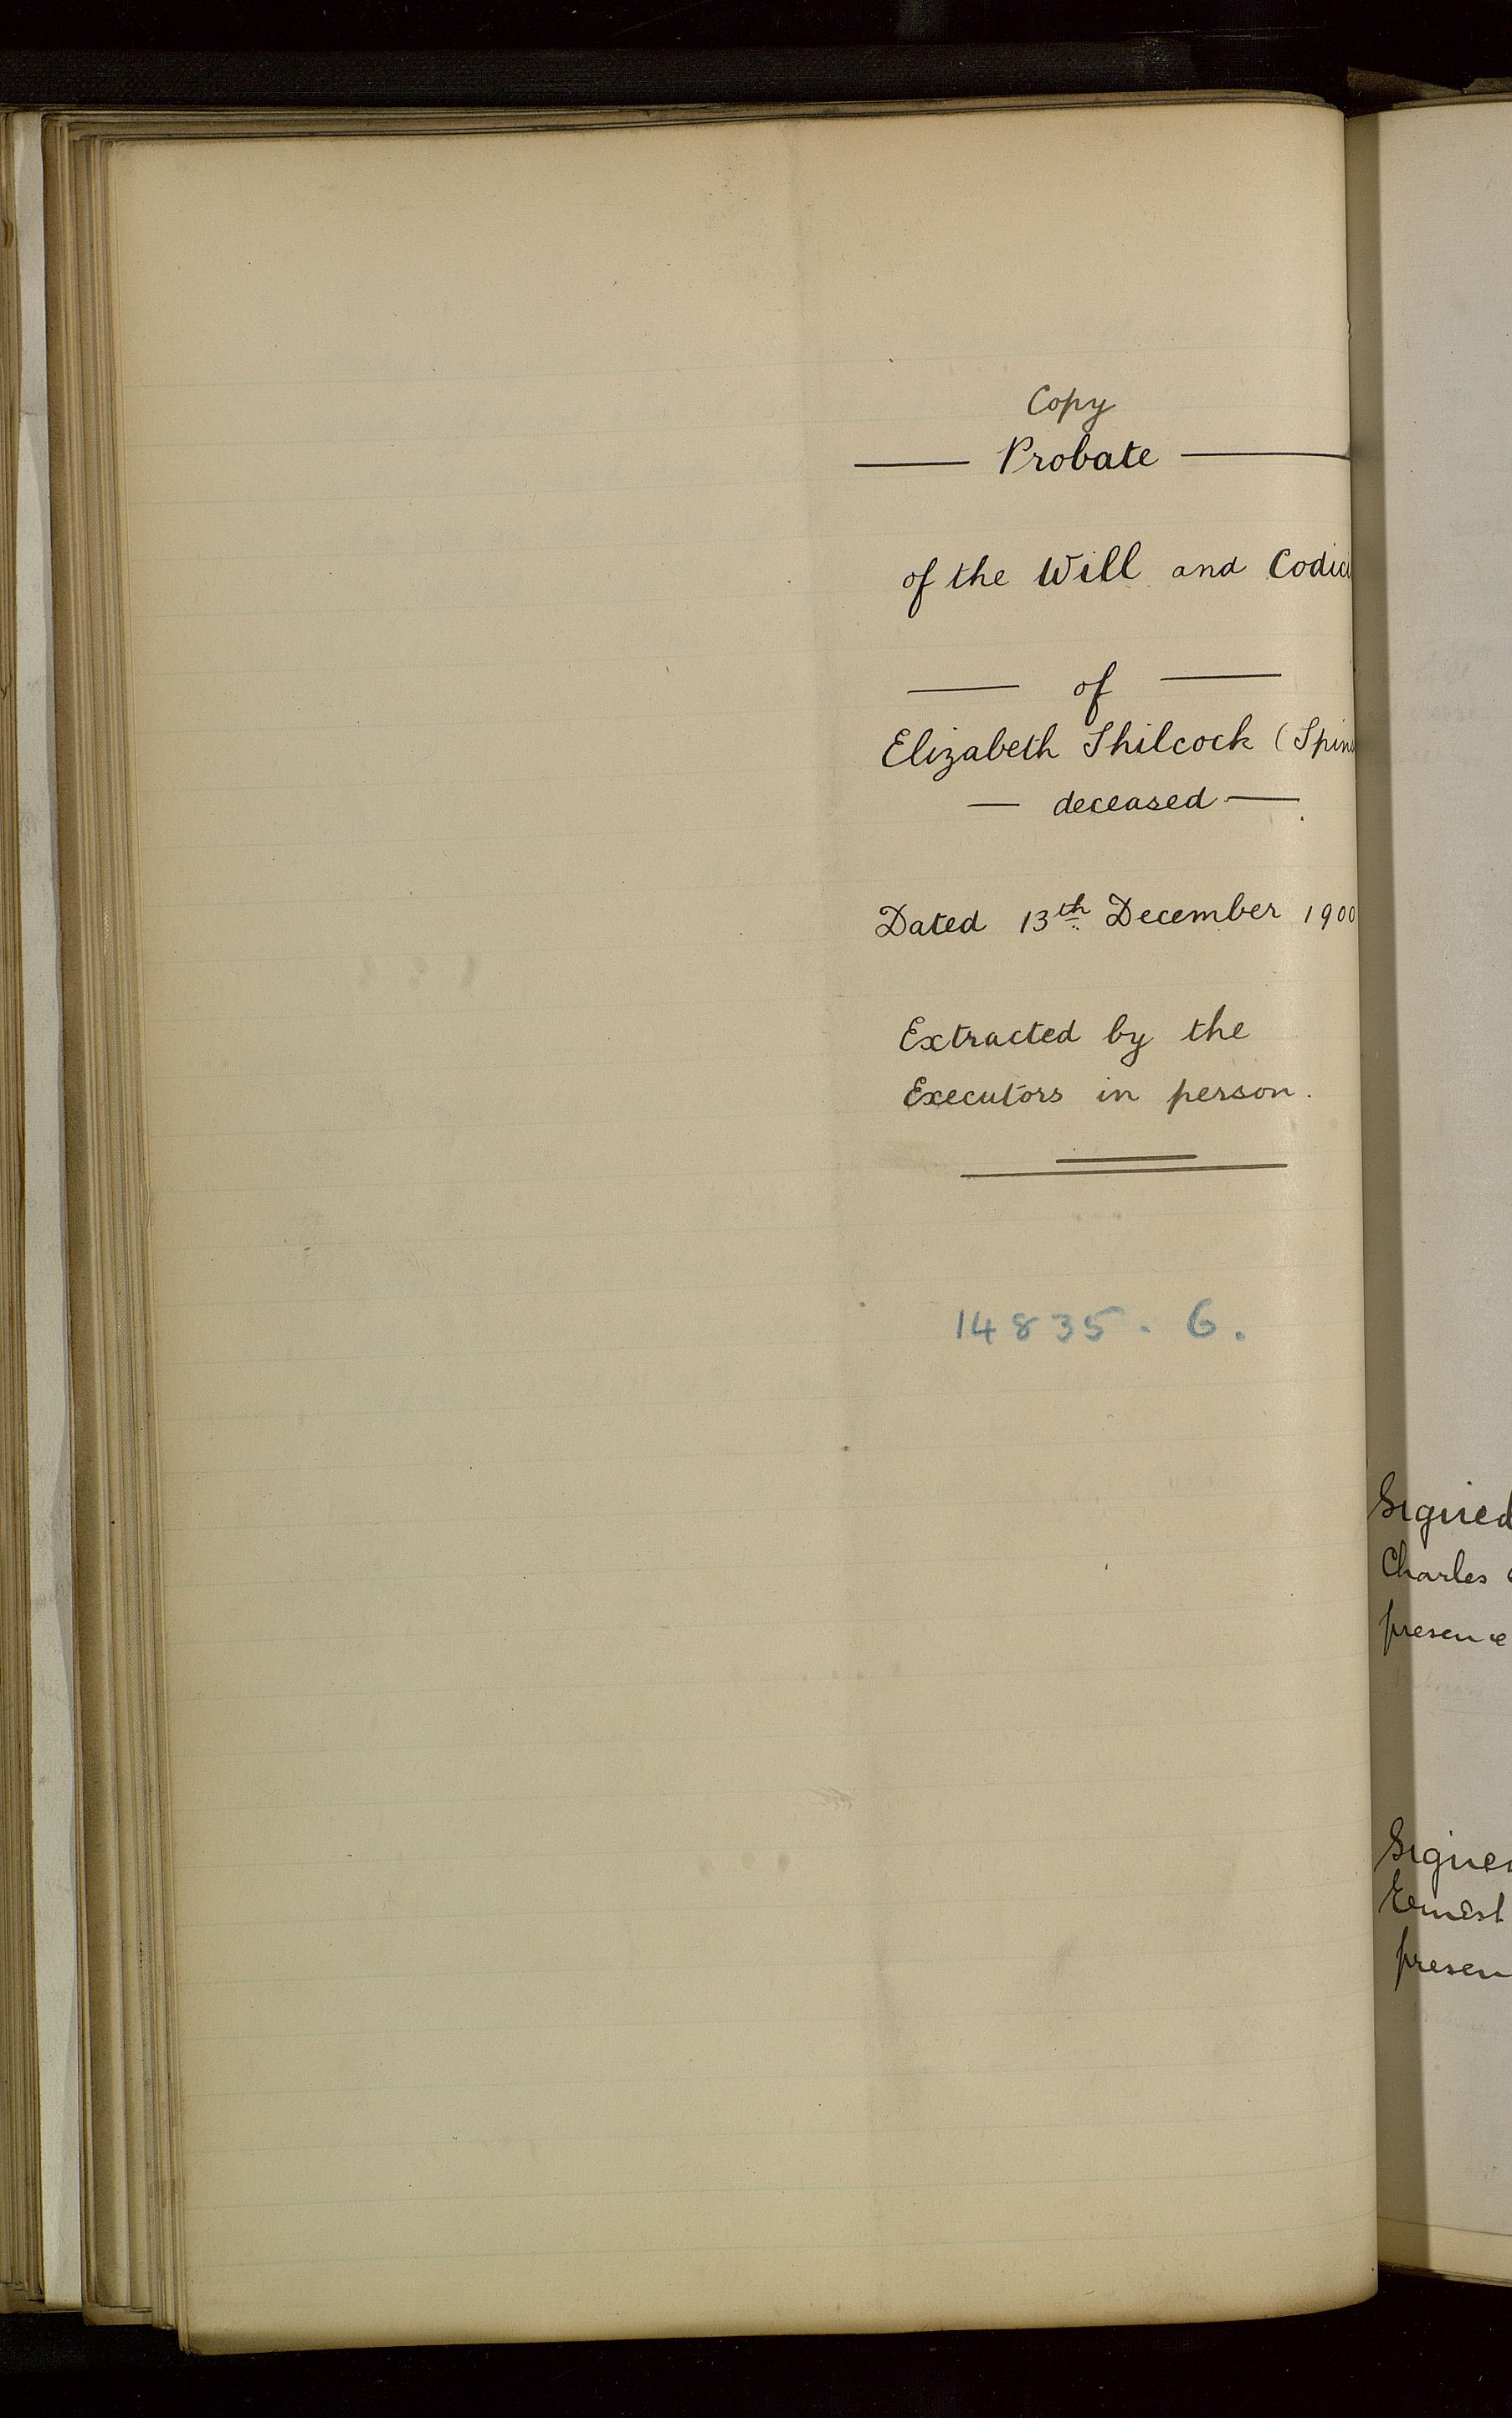 Copy
Probate
of the Will and Codici
of
Elizabeth Shilcock (Spins
deceased
Dated 13th December 1900
Extracted by the
Executors in person.
14835. 6.
Signed
Charles
presence
Signed
Ernest
presen